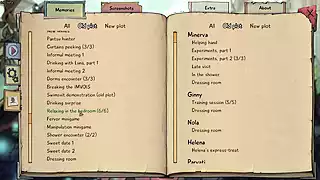 Memories
Screenshots
Extra
About
All Old plot New plot
Pantsu hunter
Curtains peeking (3/3)
Informal meeting 1
Drinking with Luna, part 1
Informal meeting 2
Dorms encounter (3/3)
Breaking the IMVOLS
Swimsuit demonstration (old plot)
Drinking surprise
Relaxing in the bedroom (6/6)
Fervor minigame
Manipulation minigame
Shower encounter (2/2)
Sweet date 1
Sweet date 2
Dressing room
All Old plot New plot
Minerva
Helping hand
Experiments, part 1
Experiments, part 2 (3/3)
Late visit
In the shower
Dressing room
Ginny
Training session (5/5)
Dressing room
Nola
Dressing room
Helena
Helena's express treat
Parvati